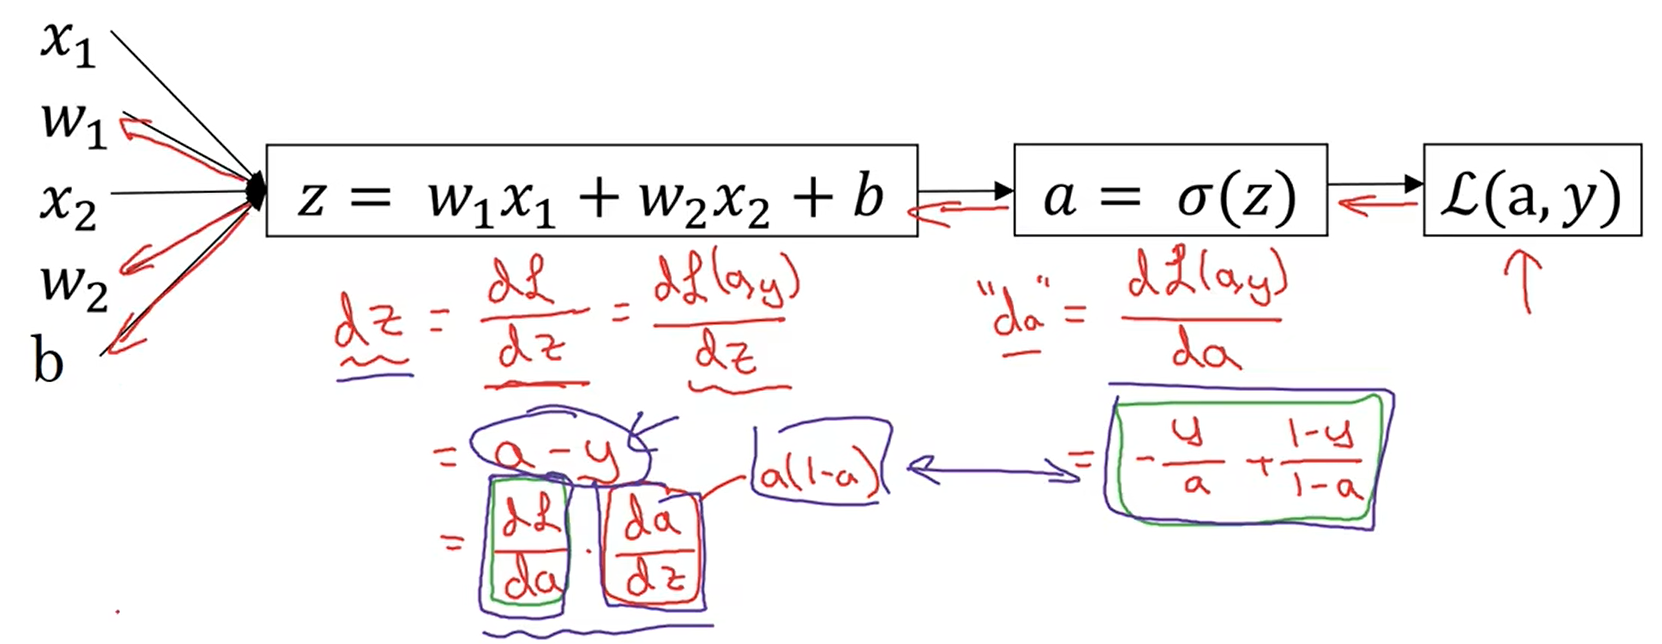 x₁
w₁
x₂
w₂
b
z = w₁x₁ + w₂x₂ + b
a = σ(z)
ℒ(a, y)
dz = dℒ/dz = dℒ(a,y)/dz
= a - y
= dℒ/da · da/dz
a(1-a)
"da" = dℒ(a,y)/da
= -y/a + (1-y)/(1-a)